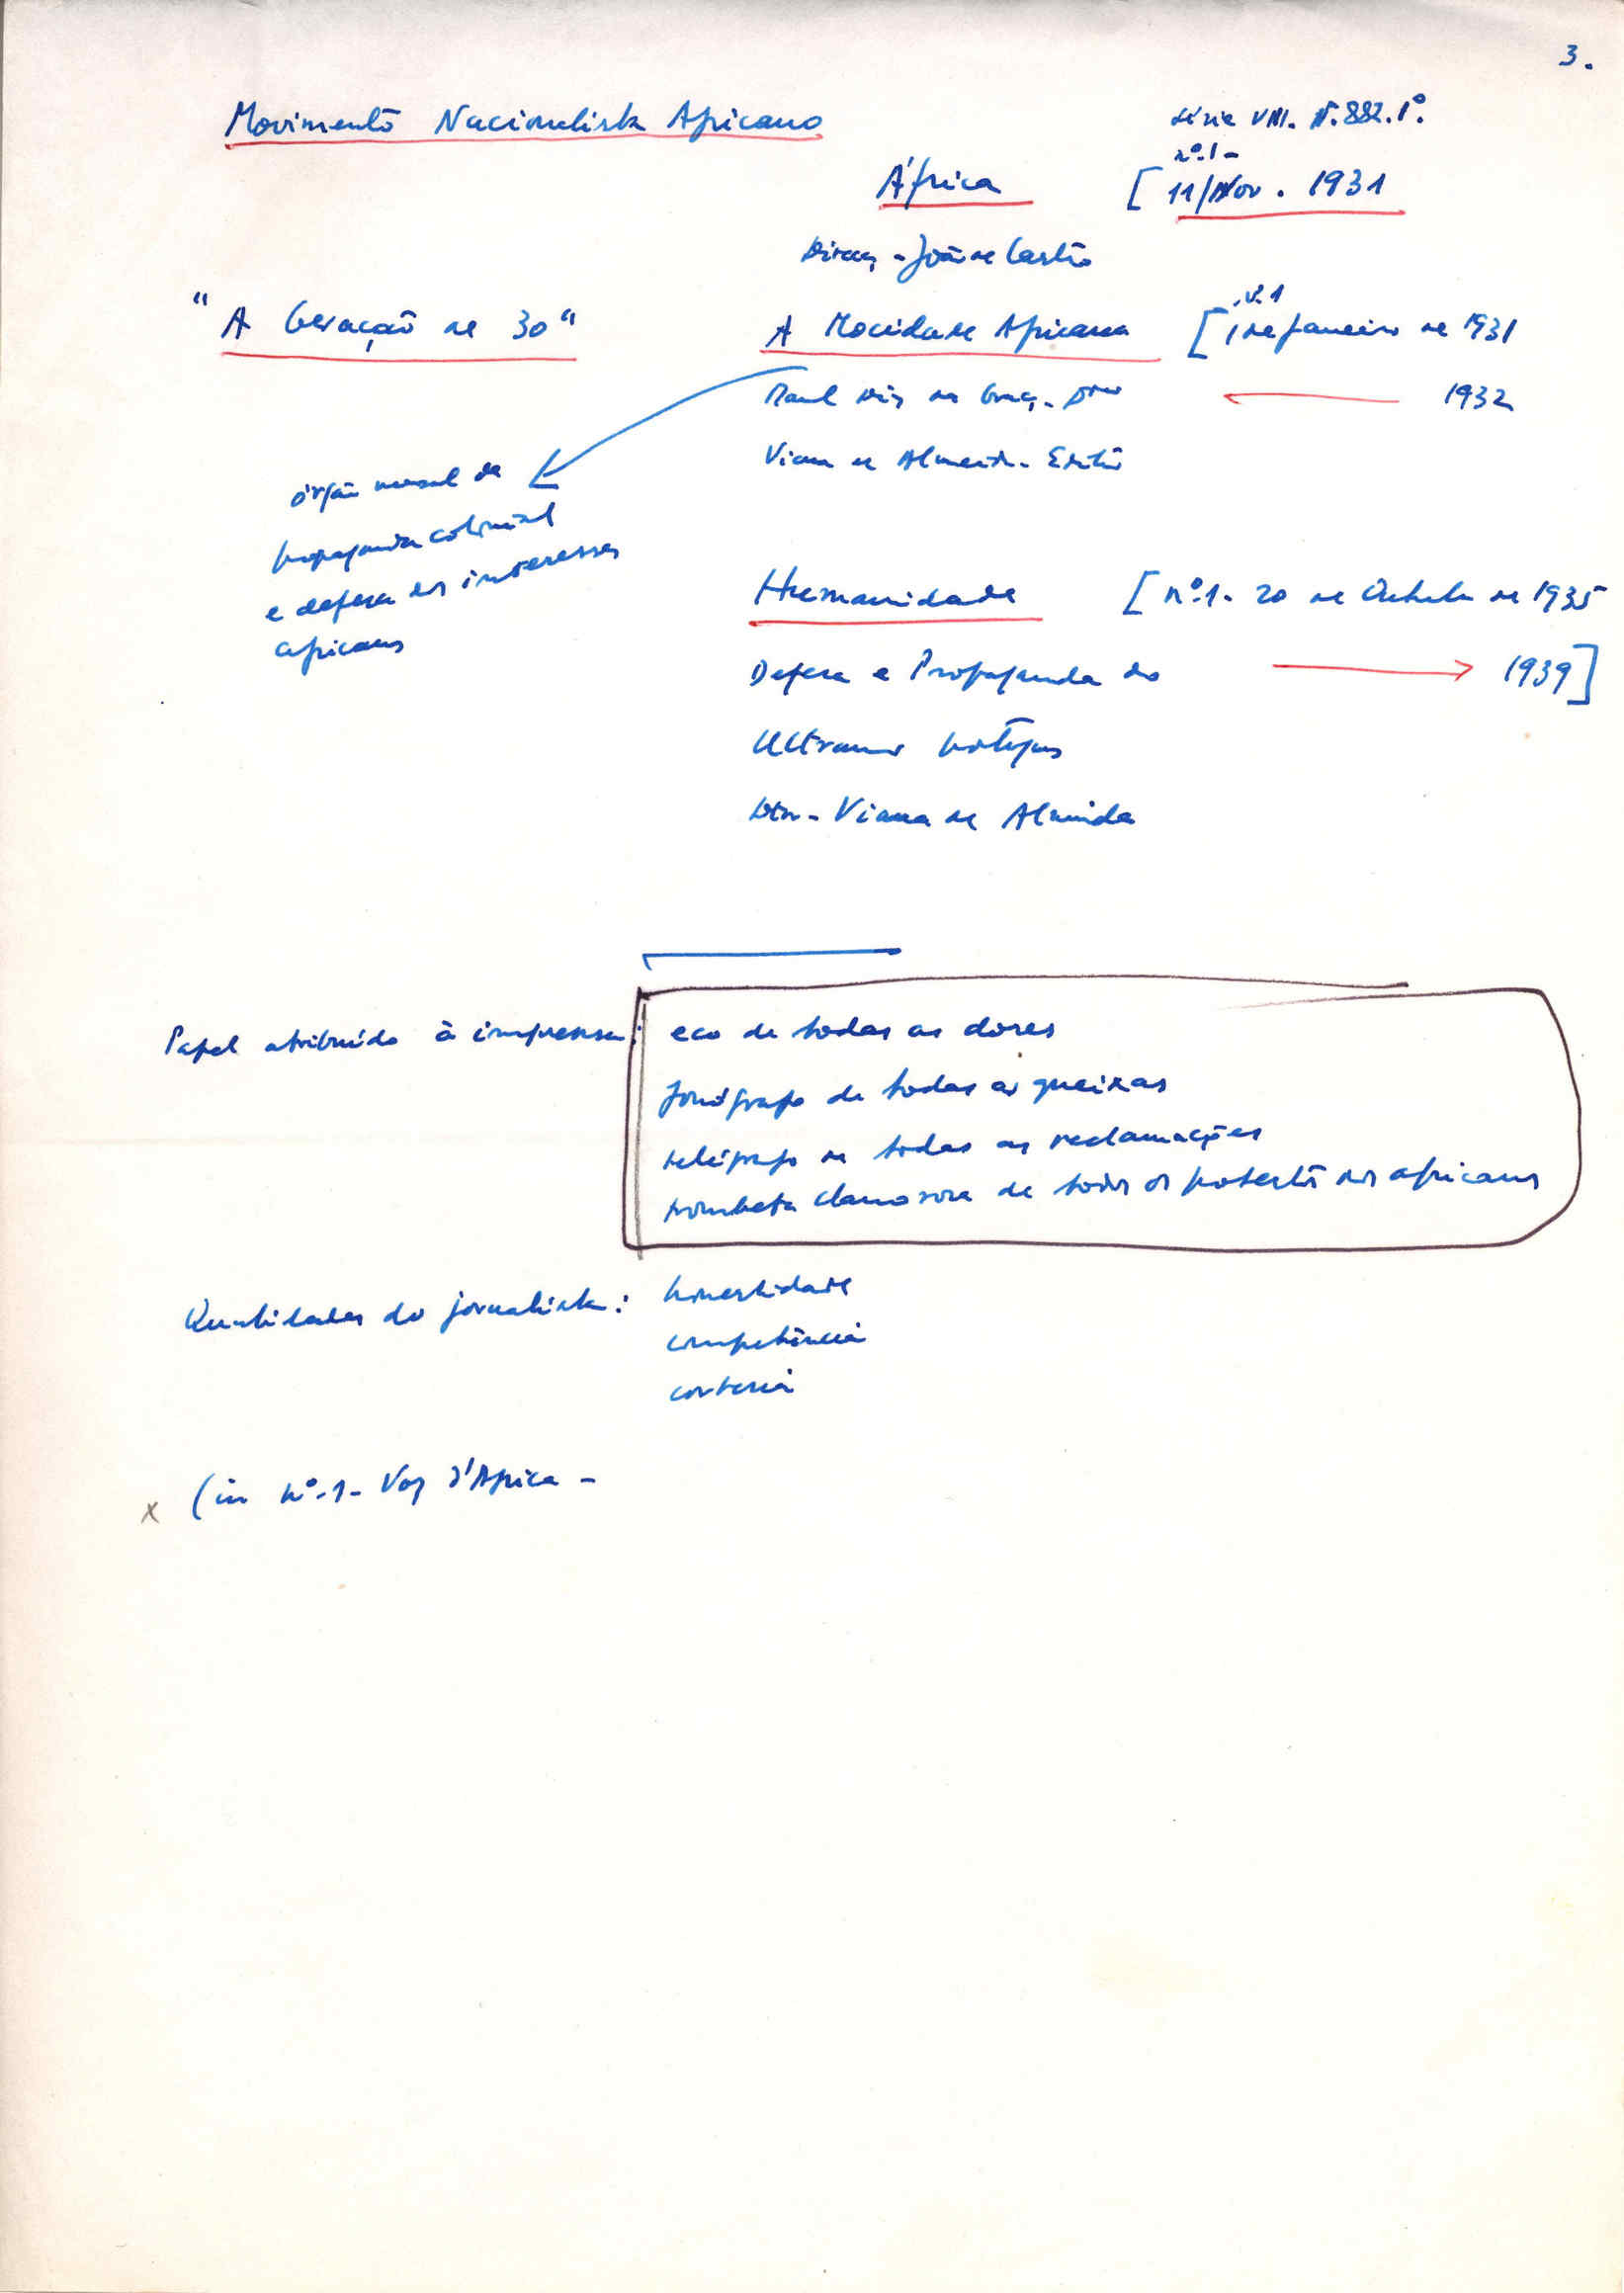 3.
Movimento Nacionalista Africano
Série VIII. N. 882. 1º.
nº. 1 -
África [ 11/Nov. 1931
Direcç - João de Castro
"A Geração de 30"
nº. 1
A Mocidade Africana [ 1 de Janeiro de 1931
Raul de Graç. Dtor 1932
Viana de Almeida - Editor
órgão mensal de
propaganda colonial
e defesa dos interesses
africanos
Humanidade [ nº.1 - 20 de Outubro de 1935
Defesa e Propaganda do 1939 ]
Ultramar português
Dtor - Viana de Almeida
Papel atribuído à imprensa: eco de todas as dores
fonógrafo de todas as queixas
telégrafo de todas as reclamações
trombeta clamorosa de todos os protestos dos africanos
Qualidades do jornalista: honestidade
competência
cortesia
x (in nº. 1 - Voz d'Africa -